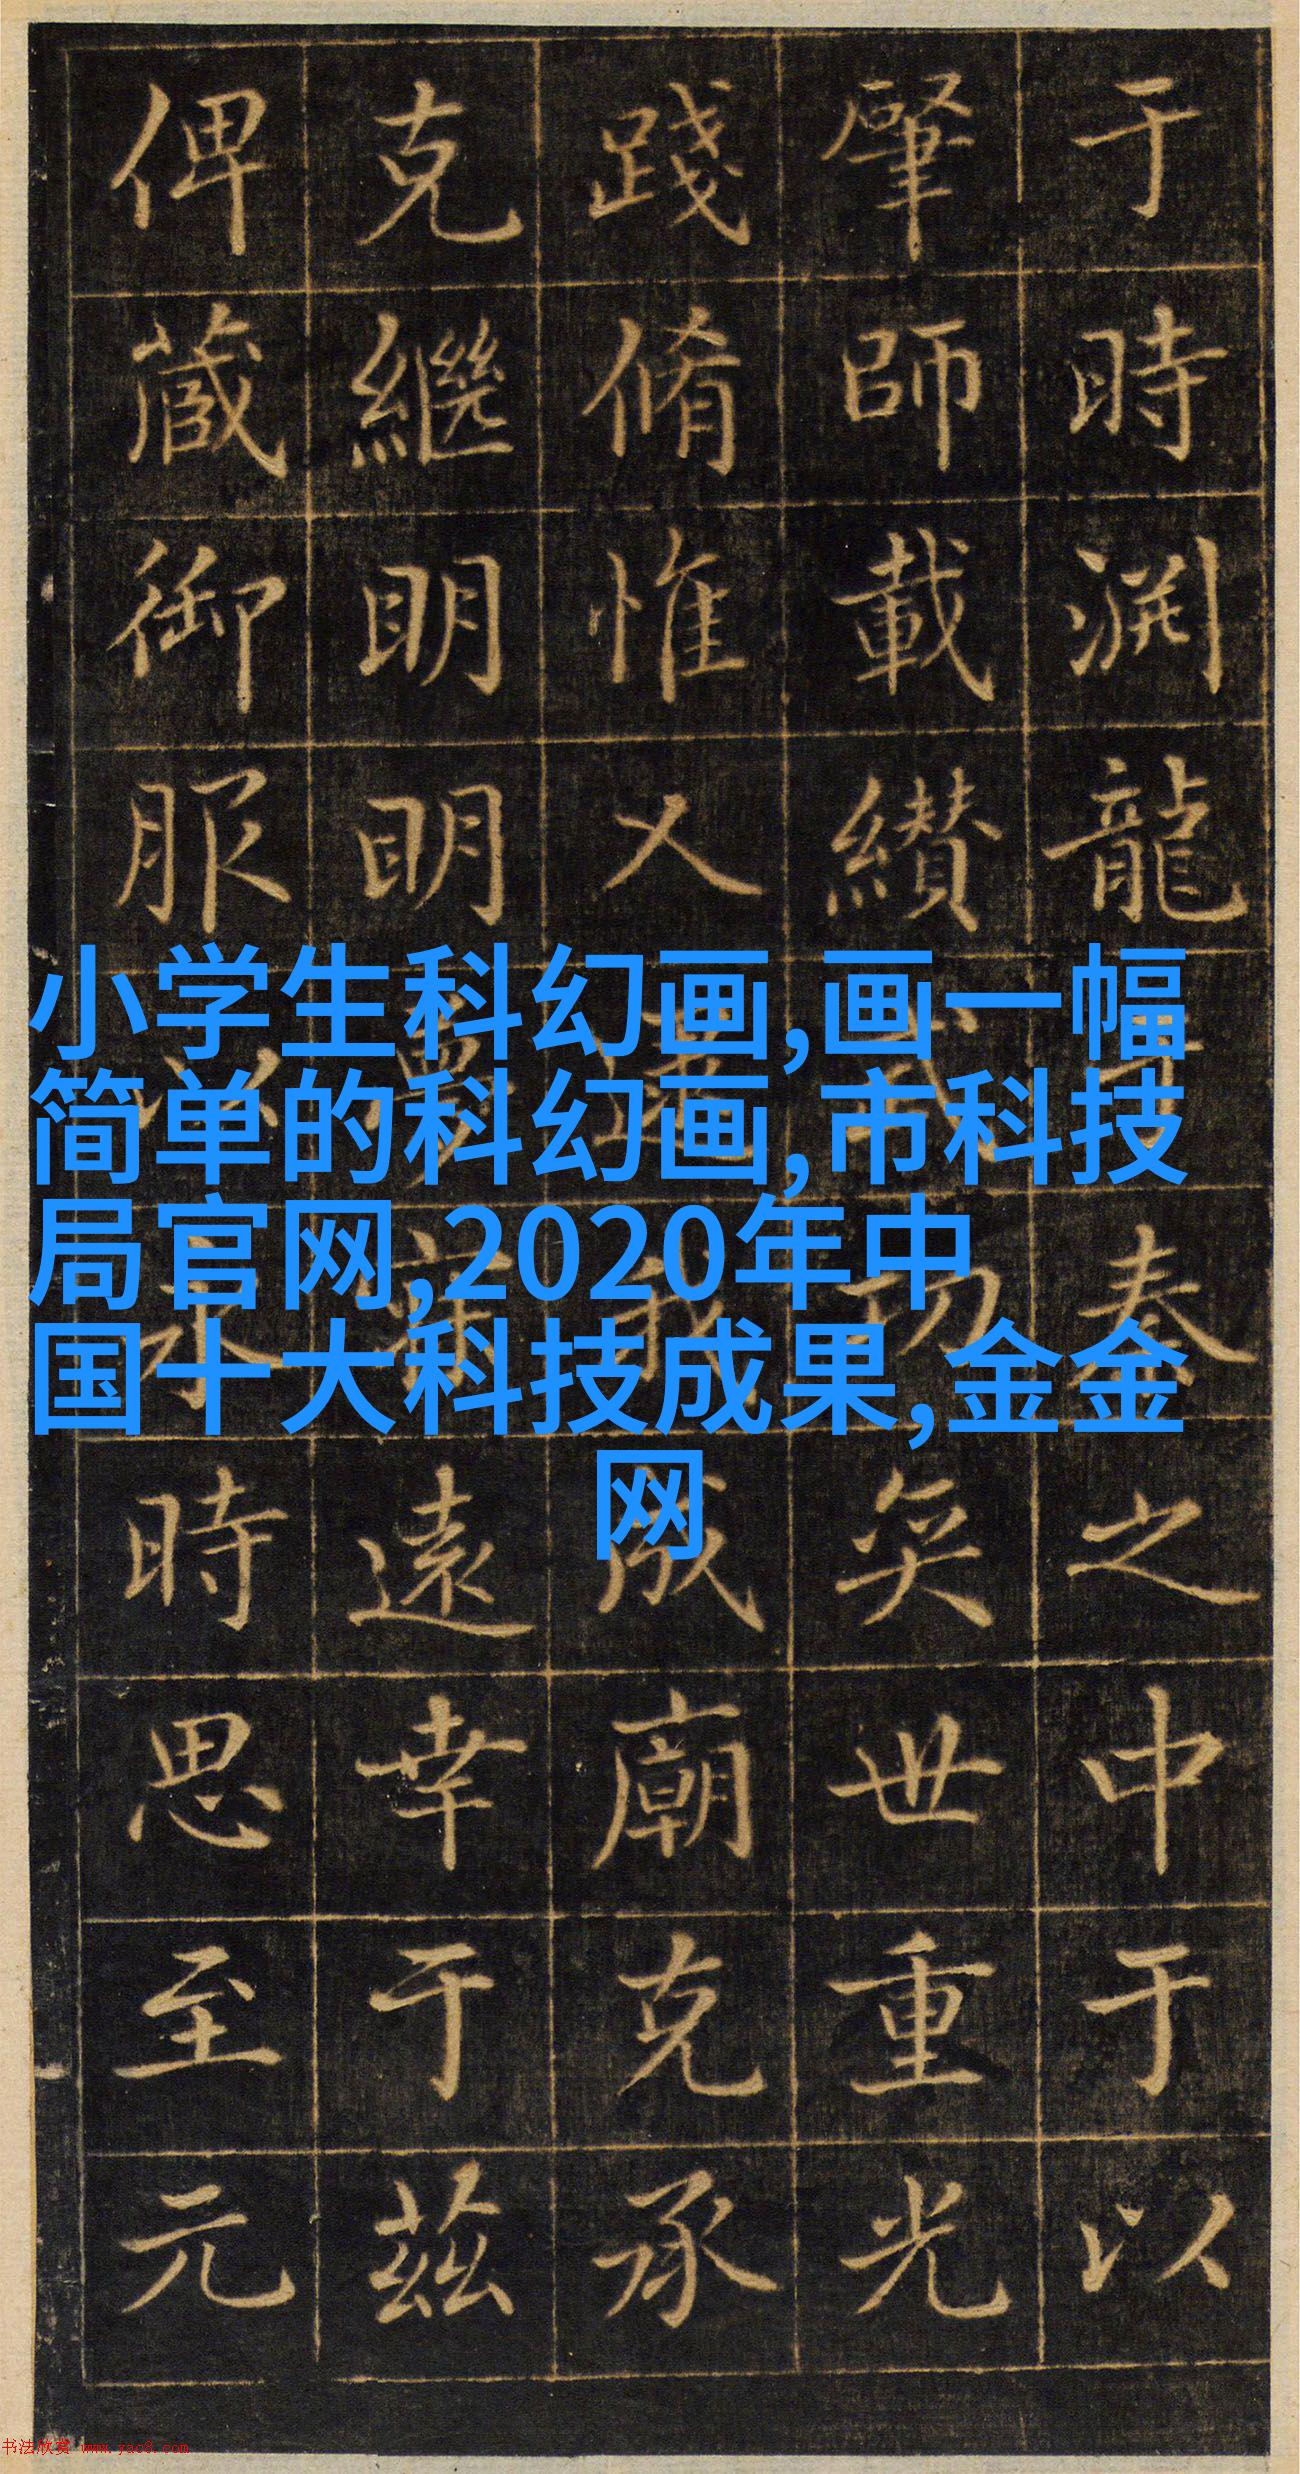 于時渊龍之中于以
肇師載纘武功奕世重光
踐脩惟乂逮我成廟克承
克繼明明夢寐遠幸于茲
俾蕆御服以永時思至元
小学生科幻画,画一幅
简单的科幻画,市科技
局官网,2020年中
国十大科技成果,金金
网
书法欣赏 www.yac8.com